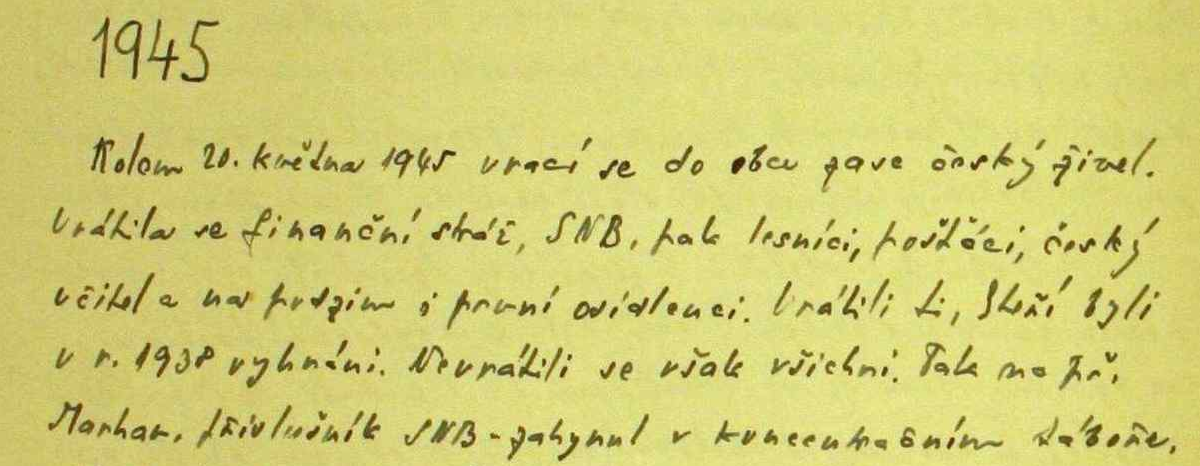 1945
Kolem 20. května 1945 vrací se do obce zase český živel.
Vrátila se finanční stráž, SNB, pak lesníci, pošťáci, český
učitel a na podzim i první osídlenci. Vrátili ti, kteří byli
v r. 1938 vyhnáni. Nevrátili se však všichni. Tak na př.
příslušník SNB - zahynul v koncentračním táboře.